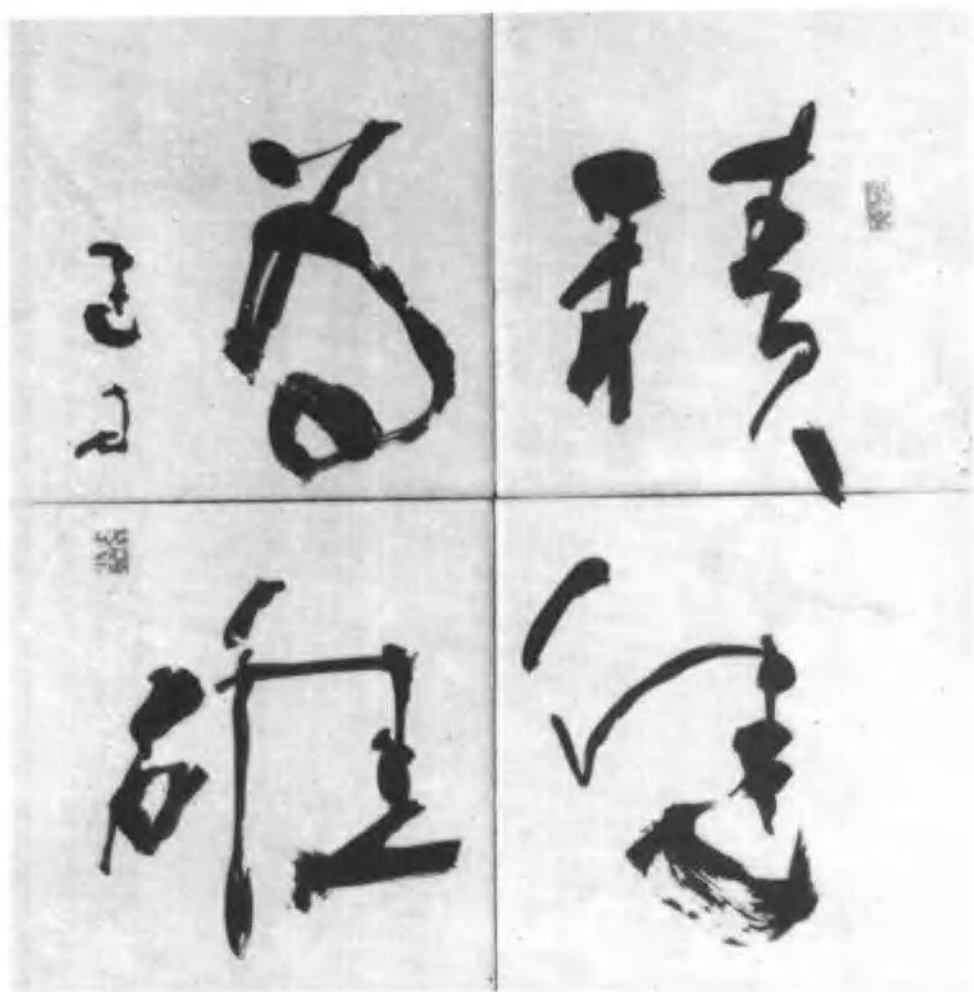 積健
為雄